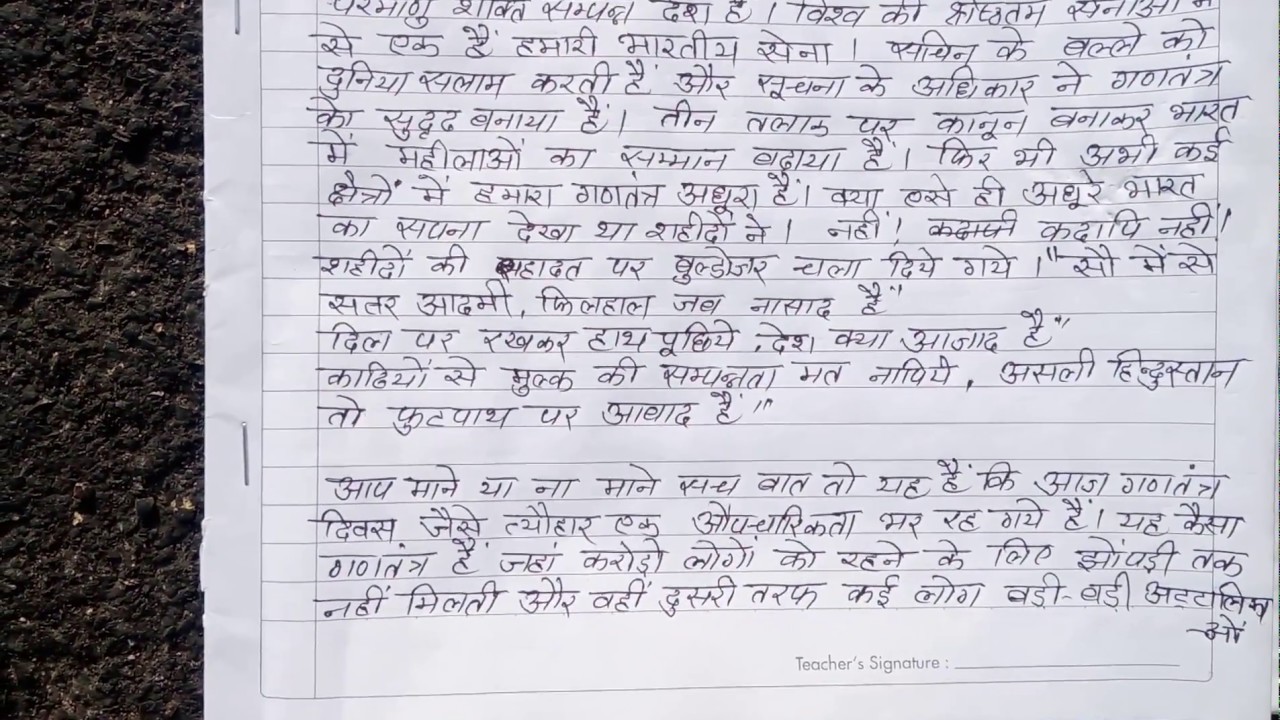 परमाणु शक्ति सम्पन्न देश है। विश्व की श्रेष्ठतम सेनाओं में
से एक हैं हमारी भारतीय सेना। सचिन के बल्ले को
दुनिया सलाम करती हैं और सूचना के अधिकार ने गणतंत्र
को सुदृढ बनाया हैं। तीन तलाक पर कानून बनाकर भारत
में महीलाओं का सम्मान बढ़ाया हैं। फिर भी अभी कई
क्षैत्रों में हमारा गणतंत्र अधूरा हैं। क्या एसे ही अधूरे भारत
का सपना देखा था शहीदों ने। नहीं! कदापी कदापि नहीं!
शहीदों की शहादत पर बुल्डोजर चला दिये गये। "सौ में से
सतर आदमी, फिलहाल जब नासाद हैं"
दिल पर रखकर हाथ पूछिये, देश क्या आजाद हैं"
काठियों से मुल्क की सम्पन्नता मत नापिये, असली हिन्दुस्तान
तो फुटपाथ पर आबाद हैं"
आप माने या ना माने सच बात तो यह हैं कि आज गणतंत्र
दिवस जैसे त्यौहार एक औपचारिकता भर रह गये हैं। यह कैसा
गणतंत्र हैं जहां करोड़ो लोगों को रहने के लिए झोंपड़ी तक
नहीं मिलती और वहीं दुसरी तरफ कई लोग बड़ी-बड़ी अट्टालिका
ओं
Teacher's Signature :